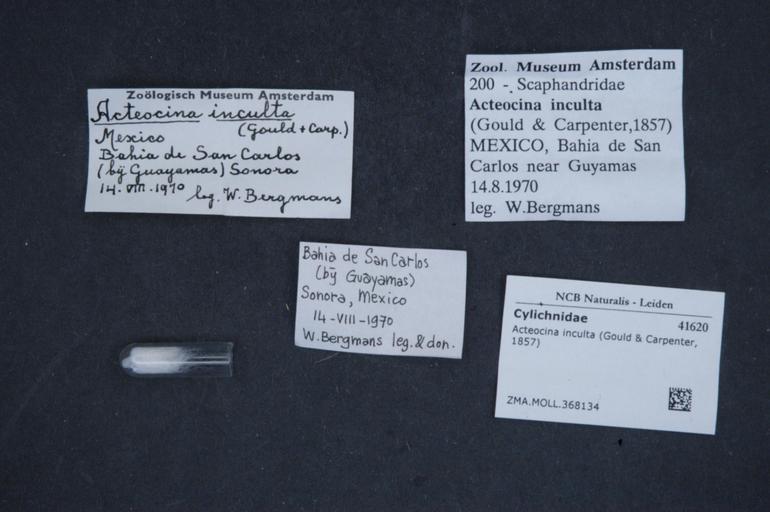 Zoölogisch Museum Amsterdam
Acteocina inculta
(Gould + Carp.)
Mexico
Bahia de San Carlos
(bÿ Guayamas) Sonora
14.VIII.1970 leg. W. Bergmans
Zool. Museum Amsterdam
200 -. Scaphandridae
Acteocina inculta
(Gould & Carpenter,1857)
MEXICO, Bahia de San
Carlos near Guyamas
14.8.1970
leg. W.Bergmans
Bahia de San Carlos
(bÿ Guayamas)
Sonora, Mexico
14-VIII-1970
W.Bergmans leg. & don.
NCB Naturalis - Leiden
Cylichnidae 41620
Acteocina inculta (Gould & Carpenter,
1857)
ZMA.MOLL.368134